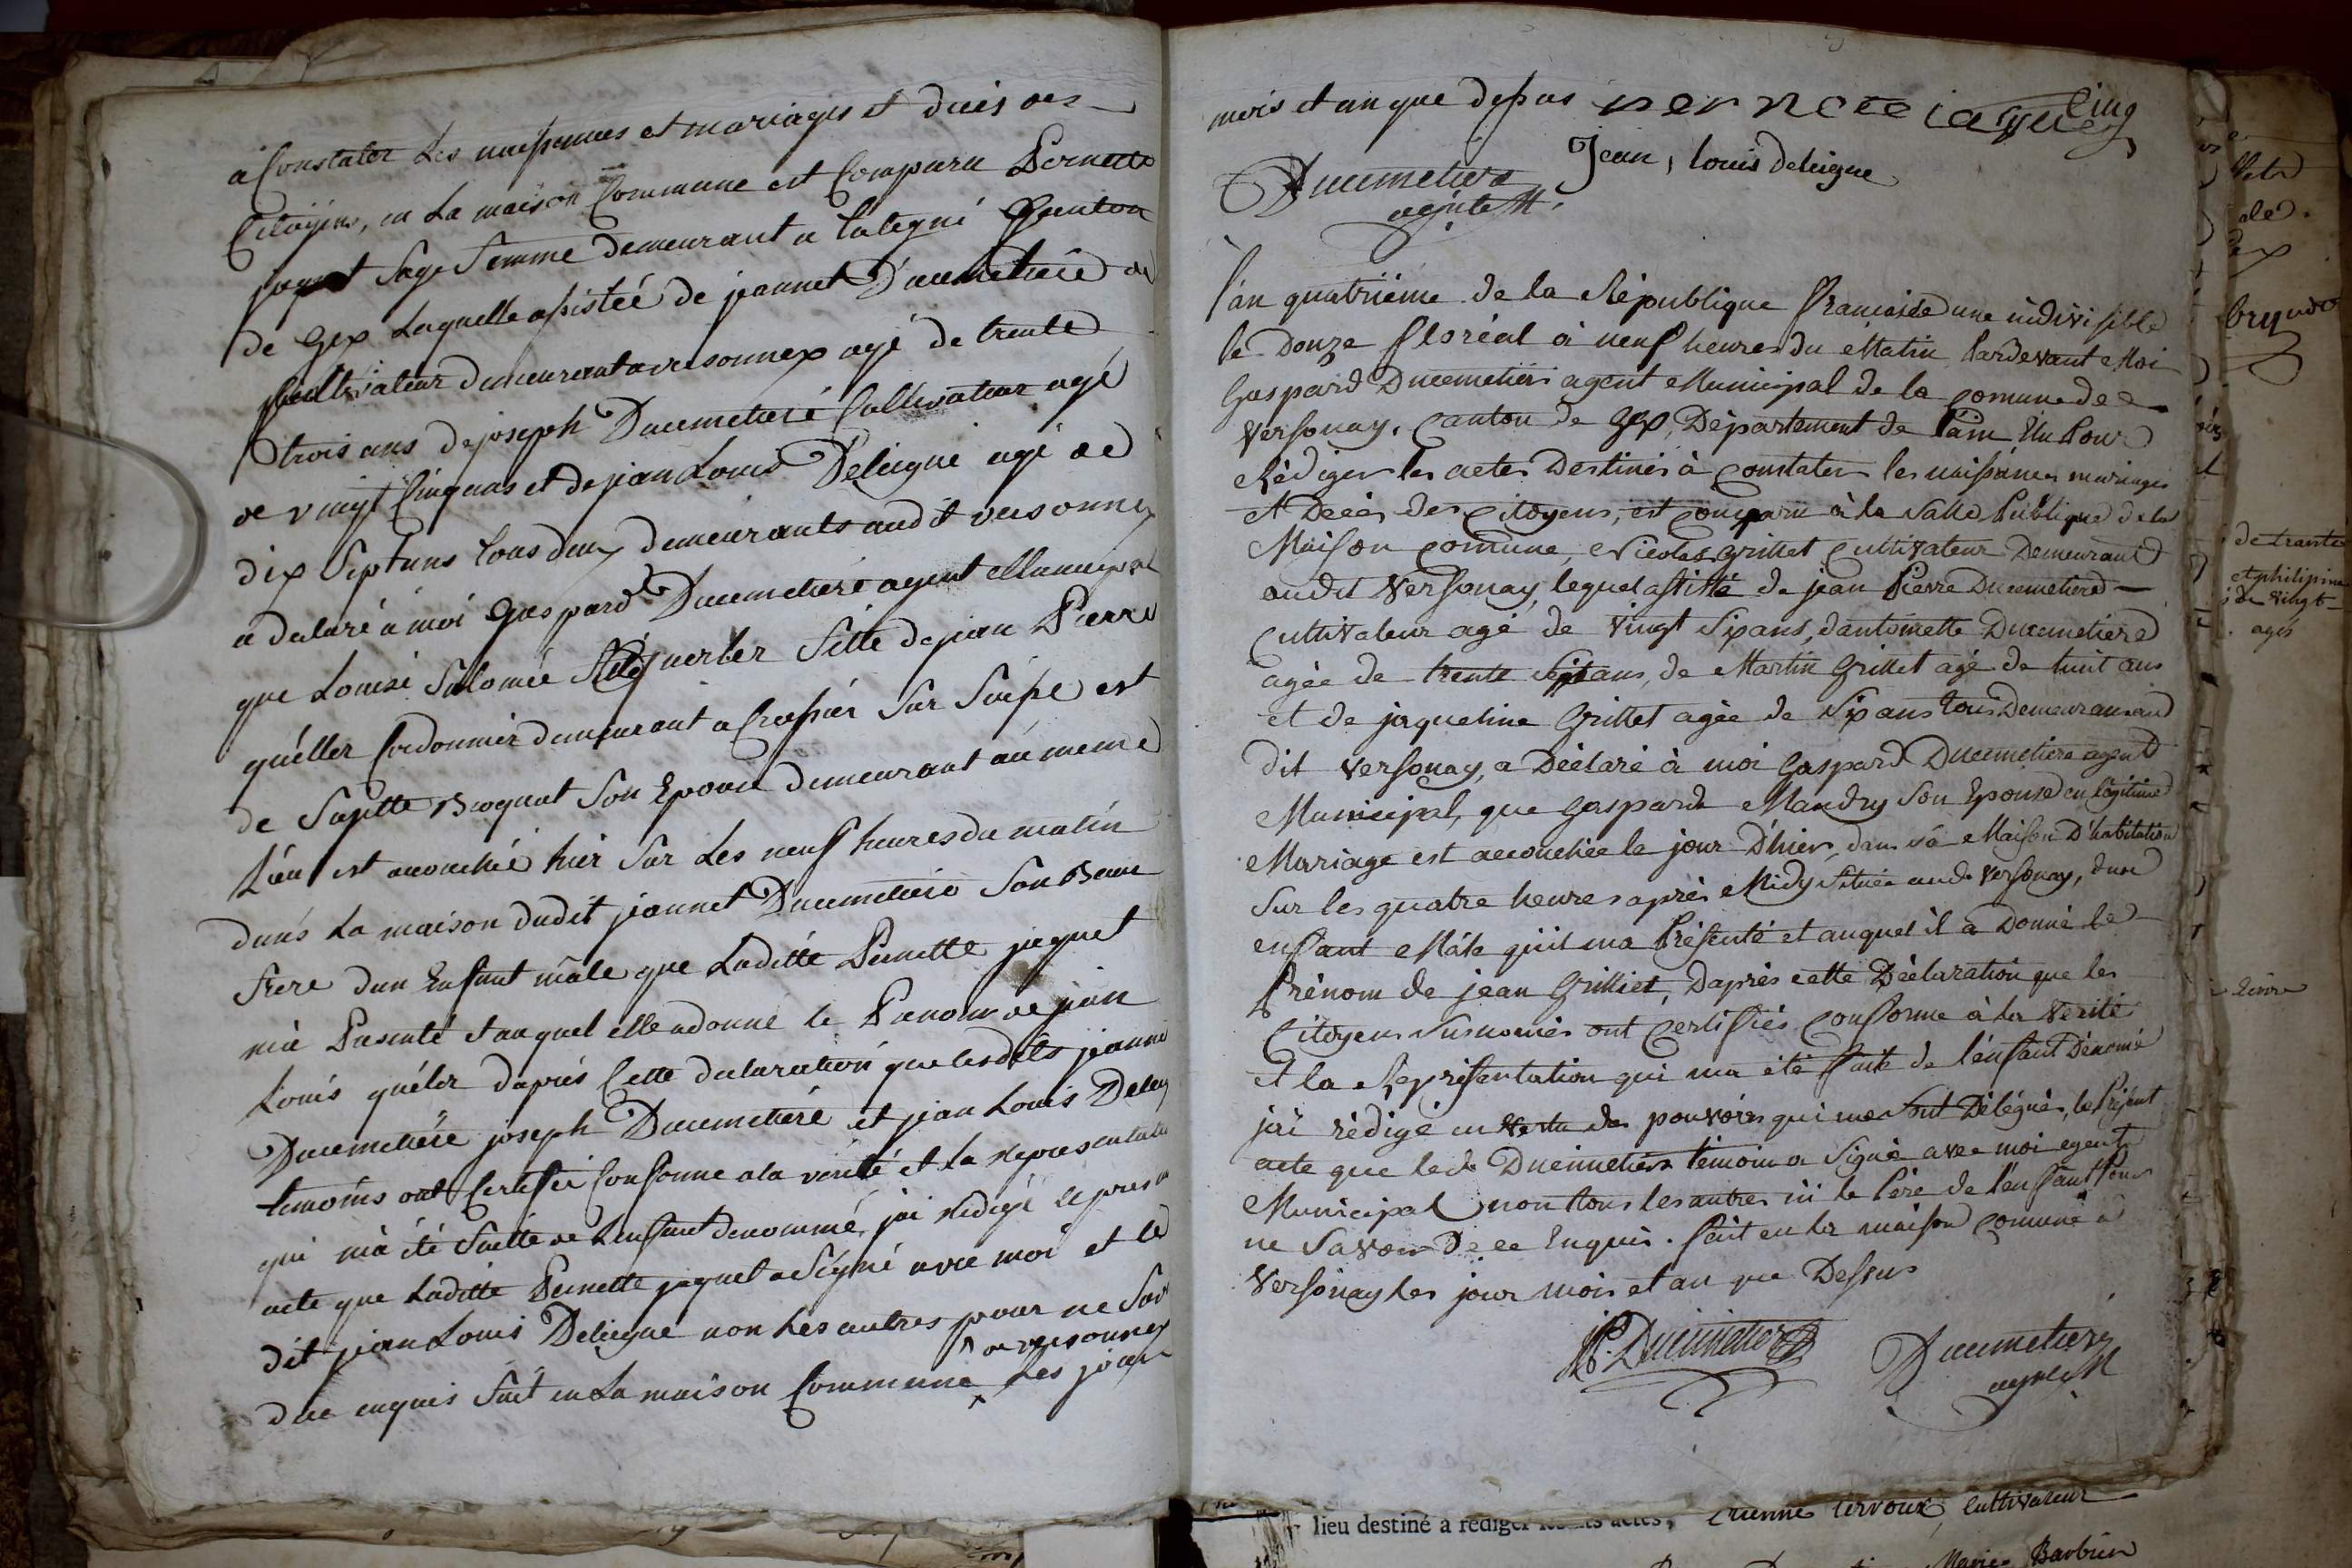 à Constater Les naissances et mariages et décès des
Citoÿens, en La maison Commune est Comparu Pernette
jaquet Sage femme demeurant a Cutegni Quanton
de Gex Laquelle assistéé de jeannet Ducimetiere
Cultivateur demeurant a versonnex agé de trente
trois ans de joseph Ducimetiere Cultivateur agé
de vingt Cinq ans et de jean Louis Deleigne agé de
dix Sept ans tous deux demeurants audit versonnex
a declaré a moi Gaspard Ducimetiere agent Municipal
que Louise Salomée fille de jean Pierre
quéller Cordonnier demeurant a Crassier Sur Suisse est
de Sujette Boquet Son Epouse demeurant au meme
Lieu est acouchée hier Sur Les neuf heures du matin
dans La maison dudit jeannet Ducimetiere Son Beau
frere dun Enfant male que Laditte Pernette jaquet
má Presenté et auquel elle adonné le Prenom de jean
Louis quéler daprés Cette declaration que lesdits jeannet
Ducimetiere joseph Ducimetiere et jean Louis Deleig
temoins ont Certifié Conforme a la verité et la representati
qui má été faitte de Lenfant denommé, jai redigé le present
acte que Laditte Pernette jaquet a Signé avec moi et le
dit jean Louis Deleigne non Les autres pour ne Savoir
^ a versonnex
duce enquis fait en La maison Commune ^ Les jour
mois et an que dessus pernete iaque
Cinq
Jean, louis deleigne
Ducimetiere
agente M.
l'an quatriéme de la République francaise une indivisible
le Douze floréal à neuf heures du Matin Pardevant Moi
Gaspard Ducimetiere agent Municipal de la comune de
Versonay, canton de Gex, Département de l'ain Elu Pour
Rédiger les actes Destinés à constater les naissances mariages
et Décès des citoyens, est comparu à la Salle Publique de la
Maison comune, Nicolas Grillet Cultivateur Demeurant
audit Versonay, lequel assisté de jean Pierre Ducimetiere
Cultivateur agé de vingt Six ans, d'antoinette Ducimetiere
agée de trente Sept ans, de Martin Grillet agé de huit ans
et de jaqueline Grillet agée de Six ans tous Demeurans au
dit Versonay, a Déclaré à moi Gaspard Ducimetiere agent
Municipal, que Gasparde Mandry Son Epouse en légitime
Mariage est acouchée le jour D'hier, dans sa Maison D'habitation
Sur les quatre heures après Midy Située aud. Versonay, dun
enfant Mâle qu'il ma Présenté et auquel il a Donné le
Prénom de jean Grilliet, Daprès cette Déclaration que les
Citoyens Susnomés ont Certifiés Conforme à la Vérité
et la Représentation qui ma été faite de l'enfant Dénomé
jai rédigé en Vertu des pouvoirs qui me sont Délégués, le Présent
acte que led. Ducimetiere témoin a Signé avec moi agent
Municipal non tous les autres ni le Père de l'enfant Pour
ne Savoir De ce Enquis. fait en la maison comune à
Versonay les jour mois et an que Dessus
JP. Ducimetiere
Ducimetiere
agent M
de trante
et philipine
de vingt
agés
lieu destiné à rédiger lesdits actes, Etienne Cervoux, Cultivateur
Marie Barbier